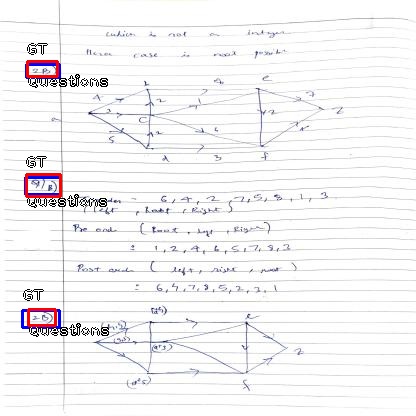 which is not an integer
Hence case is not possible
GT
2B)
Questions
b 4 e
4 2 1 7
a 3 C 2 z
5 2 6
d 3 f
GT
9/B)
Questions
6, 4, 2, 7, 5, 8, 1, 3
(left, Root, Right)
Pre order (Root, left, Right)
= 1, 2, 4, 6, 5, 7, 8, 3
Post order (left, right, root)
= 6, 4, 7, 8, 5, 2, 3, 1
GT
2B)
Questions
e
z
f